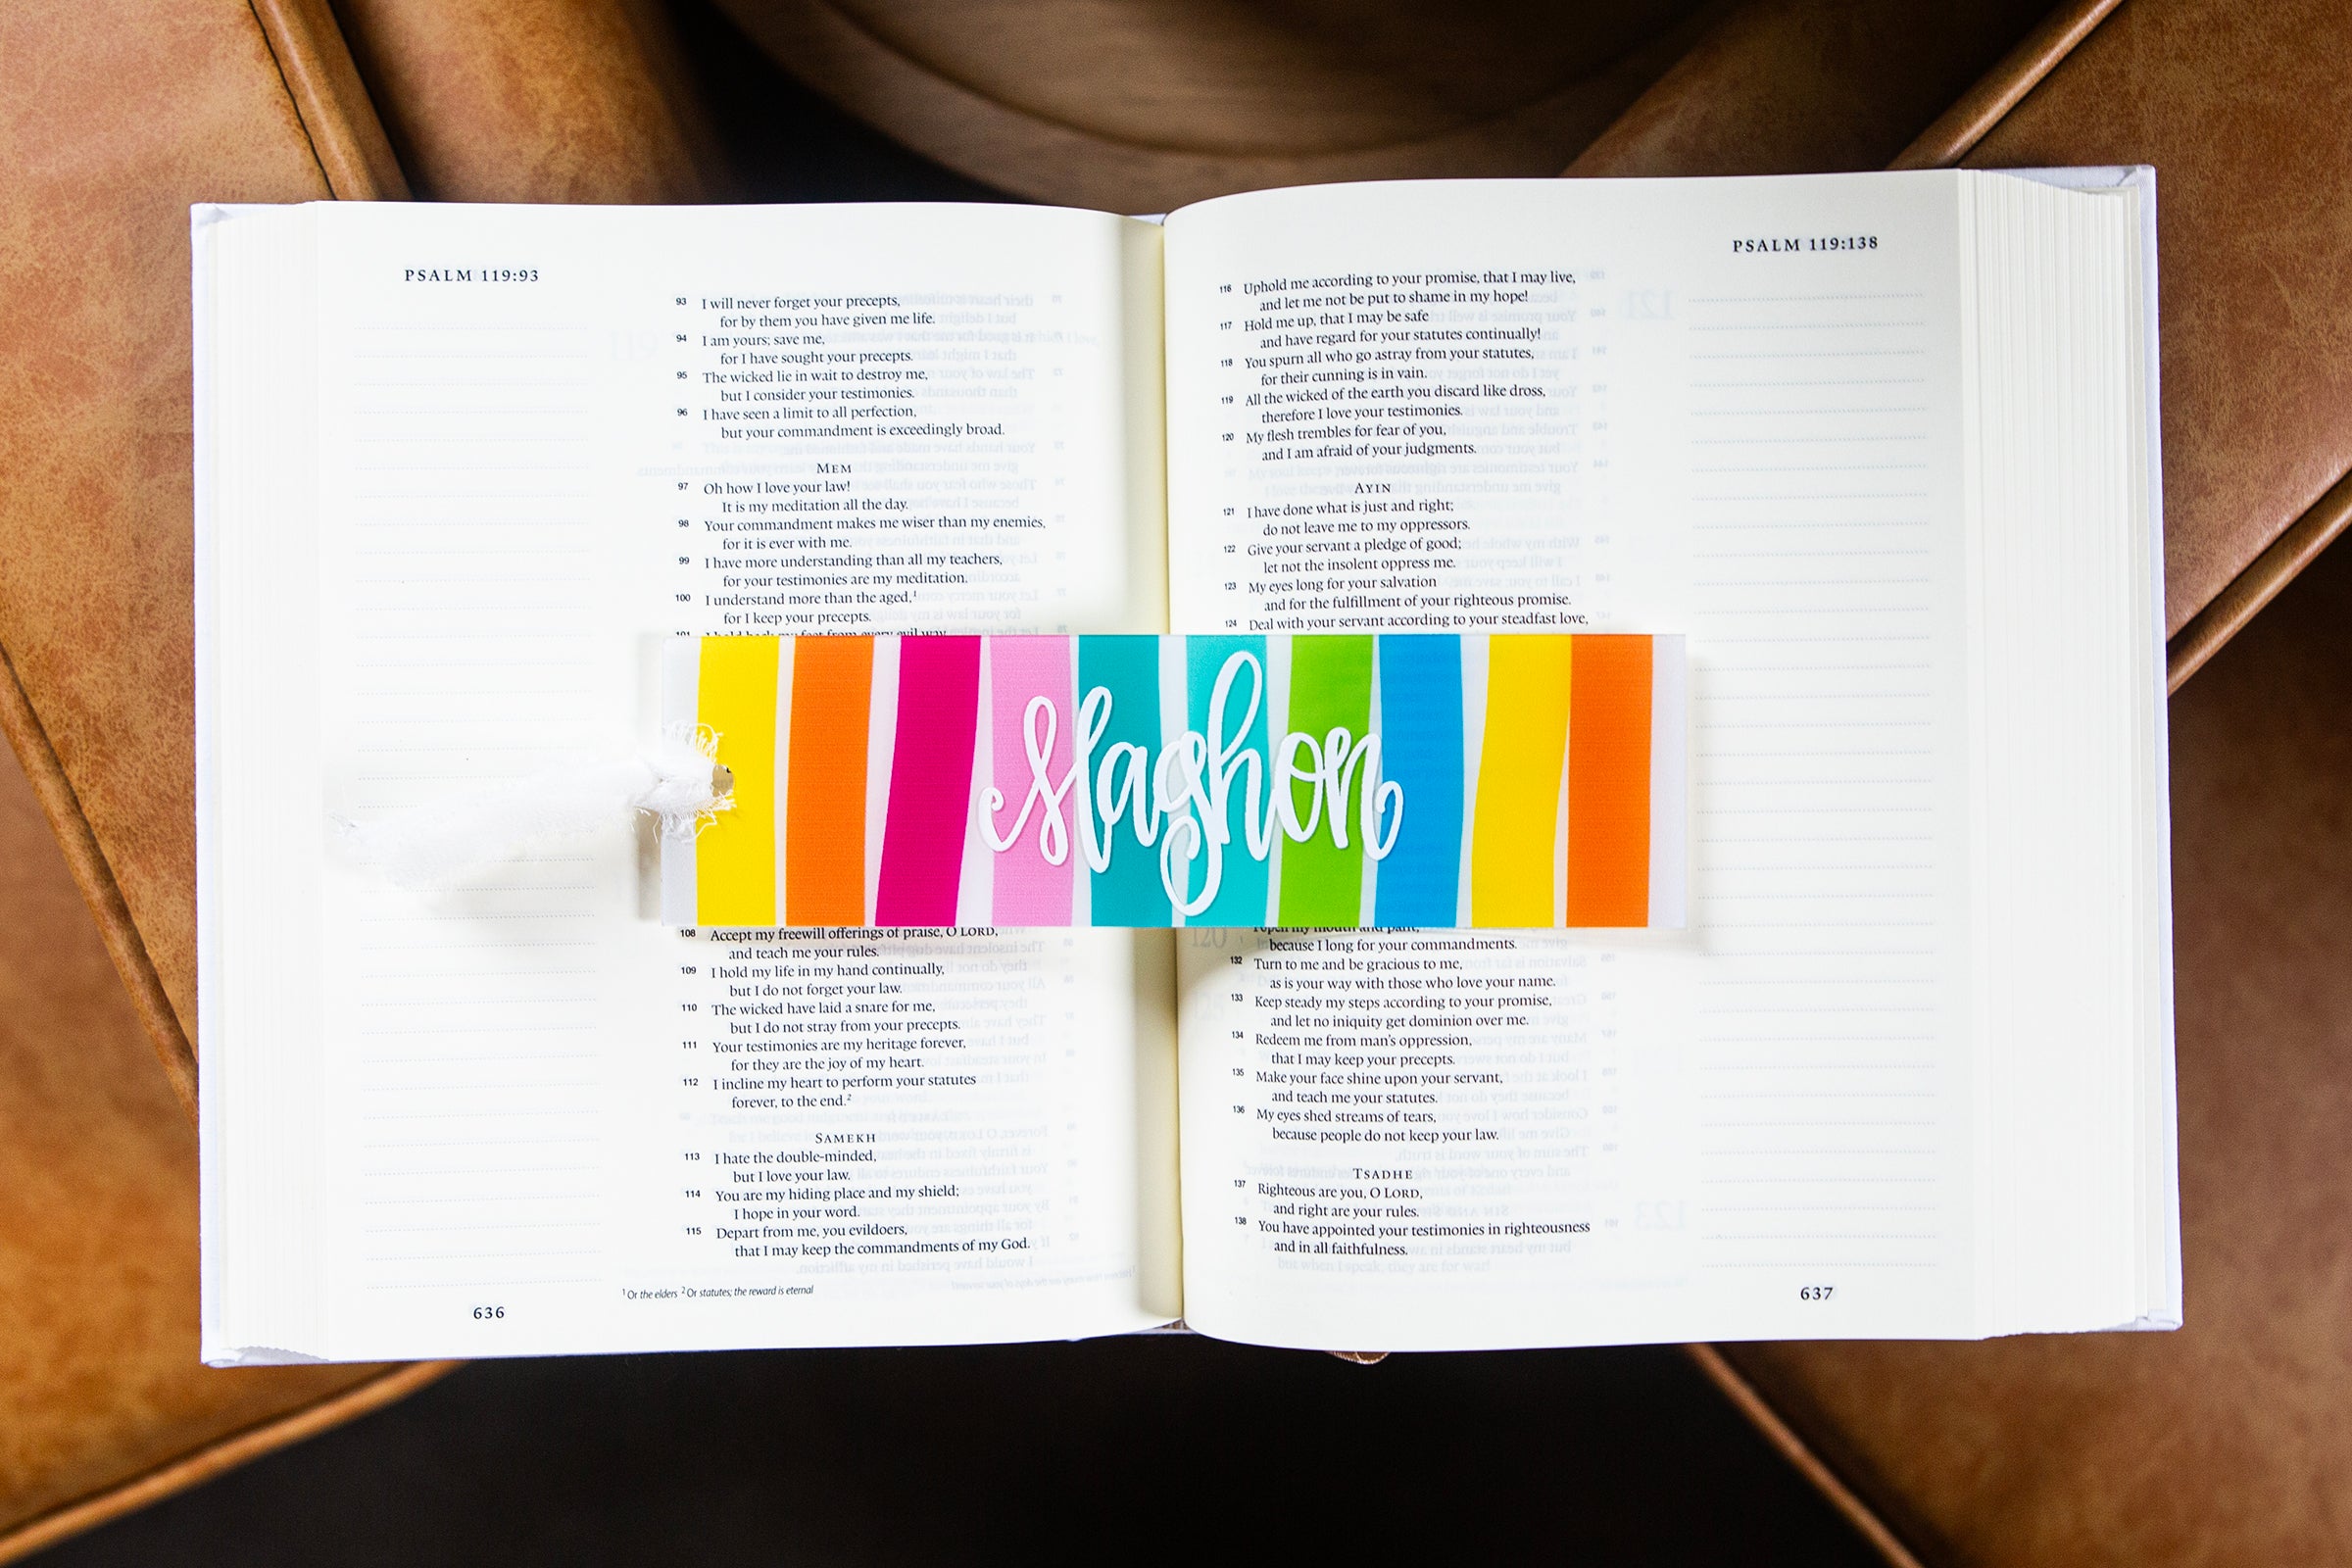 PSALM 119:93
93 I will never forget your precepts,
for by them you have given me life.
94 I am yours; save me,
for I have sought your precepts.
95 The wicked lie in wait to destroy me,
but I consider your testimonies.
96 I have seen a limit to all perfection,
but your commandment is exceedingly broad.
MEM
97 Oh how I love your law!
It is my meditation all the day.
98 Your commandment makes me wiser than my enemies,
for it is ever with me.
99 I have more understanding than all my teachers,
for your testimonies are my meditation.
100 I understand more than the aged,1
for I keep your precepts.
101 I hold back my feet from every evil way,
108 Accept my freewill offerings of praise, O LORD,
and teach me your rules.
109 I hold my life in my hand continually,
but I do not forget your law.
110 The wicked have laid a snare for me,
but I do not stray from your precepts.
111 Your testimonies are my heritage forever,
for they are the joy of my heart.
112 I incline my heart to perform your statutes
forever, to the end.2
SAMEKH
113 I hate the double-minded,
but I love your law.
114 You are my hiding place and my shield;
I hope in your word.
115 Depart from me, you evildoers,
that I may keep the commandments of my God.
1 Or the elders 2 Or statutes; the reward is eternal
636
PSALM 119:138
116 Uphold me according to your promise, that I may live,
and let me not be put to shame in my hope!
117 Hold me up, that I may be safe
and have regard for your statutes continually!
118 You spurn all who go astray from your statutes,
for their cunning is in vain.
119 All the wicked of the earth you discard like dross,
therefore I love your testimonies.
120 My flesh trembles for fear of you,
and I am afraid of your judgments.
AYIN
121 I have done what is just and right;
do not leave me to my oppressors.
122 Give your servant a pledge of good;
let not the insolent oppress me.
123 My eyes long for your salvation
and for the fulfillment of your righteous promise.
124 Deal with your servant according to your steadfast love,
I open my mouth and pant,
because I long for your commandments.
132 Turn to me and be gracious to me,
as is your way with those who love your name.
133 Keep steady my steps according to your promise,
and let no iniquity get dominion over me.
134 Redeem me from man's oppression,
that I may keep your precepts.
135 Make your face shine upon your servant,
and teach me your statutes.
136 My eyes shed streams of tears,
because people do not keep your law.
TSADHE
137 Righteous are you, O LORD,
and right are your rules.
138 You have appointed your testimonies in righteousness
and in all faithfulness.
637